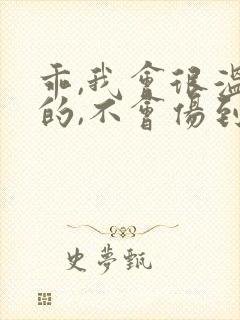 乖,我會很溫
的,不會傷到
史夢甄